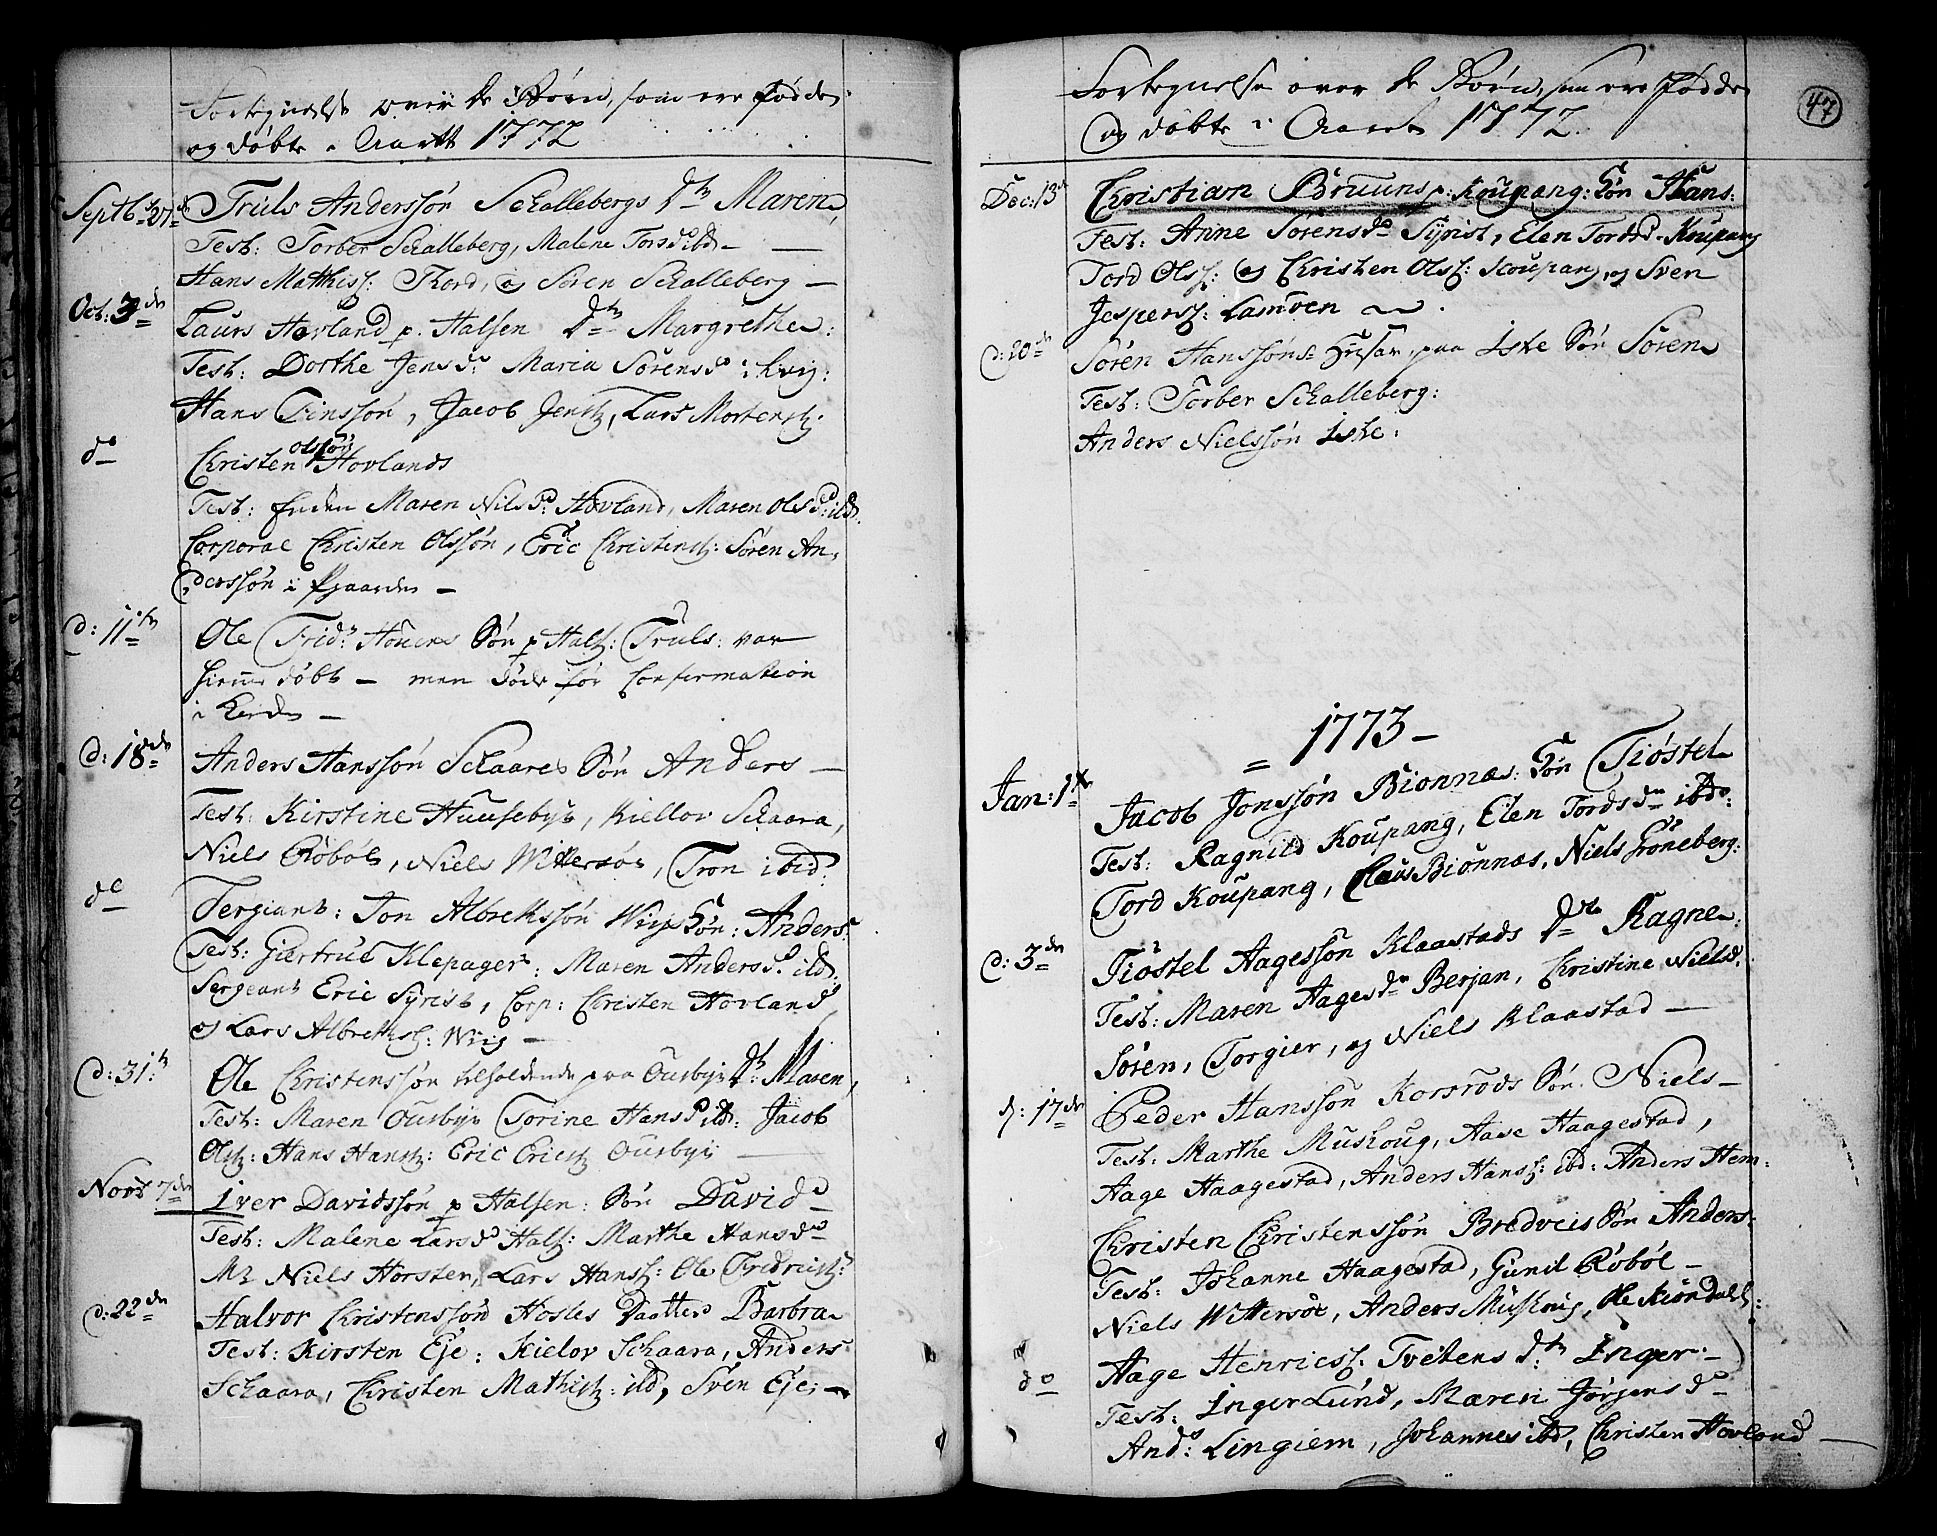 Fortegnelse over de Børn, som ere fødde
og døbte i Aaret 1772
Septb: 27de Truls Anderssøn Schallebergs Dtr Maren
Test: Torber Schalleberg, Malene Torsd: ibd –
Hans Matthisß: Thord, og Sören Schalleberg –
Oct: 3de Laurs Hovland p. Halsen Dtr Margrethe:
Test: Dorthe Jensdr Maria Sörensd:
Hans Finssön, Jacob Jensß, Lars Mortensß:
do Christen Olssön Hovlands
Test: Maren Nilsd: Hovland, Maren Olsd: ibd:
Corporal Christen Olssön, Eric Christensß: Sören An-
derssön i
d: 11te Ole Frid: Sön p Halß: Truls: var
hiemme døbt – men døde før Confirmation
i Kirken –
d: 18de Anders Hanssön Schaares Sön Anders –
Test: Kirstine Huuseby, Kiellov Schaara,
Niels Röböl, Niels Wittersöe, Tron ibid:
do Sergiant: Jon Albretssön Wiigs Sön: Anders:
Test: Giertrud Klepager: Maren Andersd: ibd:
Sergeant Eric Syrist, Corp: Christen Hovland
og Lars Albrethsß: Wiig –
d: 31te Ole Christenssön tilholdende paa Ousby Dtr: Maren,
Test: Maren Ousby Torine Hansd: ibd: Jacob
Olsß: Hans Hansß: Eric Ericsß Ousby
Nov: 7de Iver Davidssön p Halsen: Sön David
Test: Malene Larsd: Halß: Marthe Hansd:
Mr Niels Horsten, Lars Hansß: Ole Fredricsß:
d: 22de Halvor Christenssön Hosles Daatter Barbra
Test: Kirsten Eje: Kielov Schaara, Anders
Schaara, Christen Mathisß: ibd, Sven Eje: –
47
Fortegnelse over de Børn, som ere fødde
og døbte i Aaret 1772
Dec: 13de Christian Bruuns p: Koupang: Sön Hans:
Test: Anne Sørensdr Syrist, Elen Tordsd. Koupang
Tord Olsß: og Christen Olsß: Koupang, og Sven
Jespersß: Lamöen
d: 20de Sören Hanssöns Husar, paa Iske Sön Sören
Test: Torber Schalleberg:
Anders Nielssön Iske:
= 1773 –
Jan: 1te Jacob Jonssön Bionnæs: Sön Tiöstel
Test: Ragnild Koupang, Elen Tordsdr ibd:
Tord Koupang, Claus Bionnæs, Niels Gröneberg:
d: 3de Tiöstel Aagessön Klaastads Dtr Ragne:
Test: Maren Aagesdr Berjan, Christine Nielsd.
Sören, Torgier, og Niels Klaastad –
d: 17de Peder Hanssön Korsröds Sön. Niels –
Test: Marthe Muskoug, Aase Haagestad,
Aage Haagestad, Anders Hansß: ibd: Anders Hem-
Christen Christenssön Bredveis Sön Anders:
Test: Johanne Haagestad, Gunil Röböl –
Niels Wittersöe, Anders Muskoug, Ole Kiöndahl:
do Aage Henricsß: Tvetens Dtr: Inger –
Test: Inger Lund, Maren Jörgensdr
And: Lingiem, Johannes ibd, Christen Hovland –